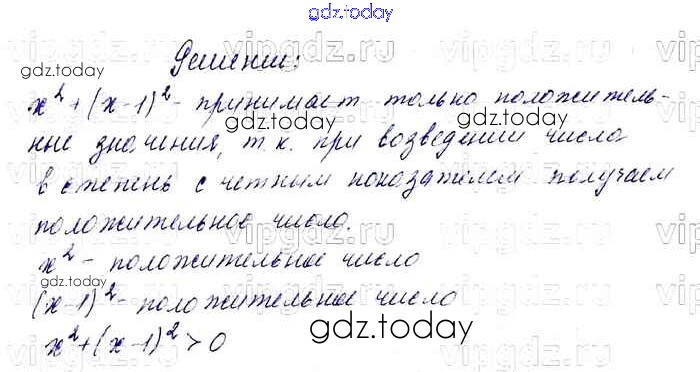 gdz.today
Решение:
x² + (x-1)² - принимает только положитель-
ные значения, т.к. при возведении числа
в степень с четным показателем получаем
положительное число.
x² - положительное число
(x-1)² - положительное число
x² + (x-1)² > 0
vipgdz.ru
gdz.today
vipgdz.ru
gdz.today
gdz.today
vipgdz.ru
gdz.today
gdz.today
vipgdz.ru
gdz.today
gdz.today
gdz.today